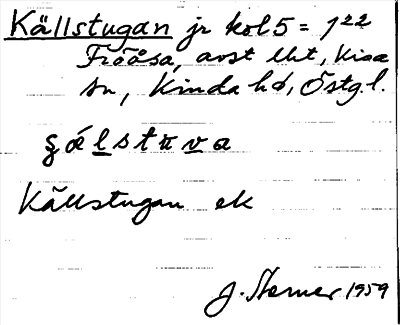 Källstugan jr kol 5 = 1²²
Fröåsa, avst lht, Kisa
sn, Kinda hd, Östg.l.
ʂálstuva
Källstugan ek
J. Sterner 1959